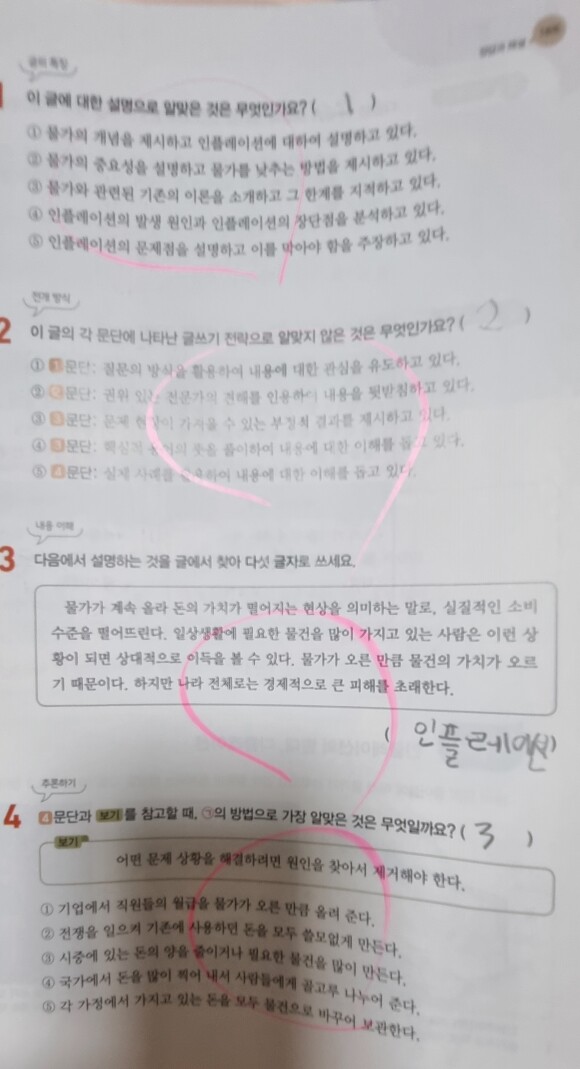 글의 특징
1
이 글에 대한 설명으로 알맞은 것은 무엇인가요? ( 1 )
① 물가의 개념을 제시하고 인플레이션에 대하여 설명하고 있다.
② 물가의 중요성을 설명하고 물가를 낮추는 방법을 제시하고 있다.
③ 물가와 관련된 기존의 이론을 소개하고 그 한계를 지적하고 있다.
④ 인플레이션의 발생 원인과 인플레이션의 장단점을 분석하고 있다.
⑤ 인플레이션의 문제점을 설명하고 이를 막아야 함을 주장하고 있다.
전개 방식
2 이 글의 각 문단에 나타난 글쓰기 전략으로 알맞지 않은 것은 무엇인가요? ( 2 )
① 1문단: 질문의 방식을 활용하여 내용에 대한 관심을 유도하고 있다.
② 문단: 권위 있는 전문가의 견해를 인용하여 내용을 뒷받침하고 있다.
③ 문단: 문제 현상이 가져올 수 있는 부정적 결과를 제시하고 있다.
④ 문단: 핵심적 용어의 뜻을 풀이하여 내용에 대한 이해를 돕고 있다.
⑤ 4문단: 실제 사례를 활용하여 내용에 대한 이해를 돕고 있다.
내용 이해
3 다음에서 설명하는 것을 글에서 찾아 다섯 글자로 쓰세요.
물가가 계속 올라 돈의 가치가 떨어지는 현상을 의미하는 말로, 실질적인 소비
수준을 떨어뜨린다. 일상생활에 필요한 물건을 많이 가지고 있는 사람은 이런 상
황이 되면 상대적으로 이득을 볼 수 있다. 물가가 오른 만큼 물건의 가치가 오르
기 때문이다. 하지만 나라 전체로는 경제적으로 큰 피해를 초래한다.
( 인플레이션 )
추론하기
4 4문단과 보기를 참고할 때, ㉠의 방법으로 가장 알맞은 것은 무엇일까요? ( 3 )
보기
어떤 문제 상황을 해결하려면 원인을 찾아서 제거해야 한다.
① 기업에서 직원들의 월급을 물가가 오른 만큼 올려 준다.
② 전쟁을 일으켜 기존에 사용하던 돈을 모두 쓸모없게 만든다.
③ 시중에 있는 돈의 양을 줄이거나 필요한 물건을 많이 만든다.
④ 국가에서 돈을 많이 찍어 내서 사람들에게 골고루 나누어 준다.
⑤ 각 가정에서 가지고 있는 돈을 모두 물건으로 바꾸어 보관한다.